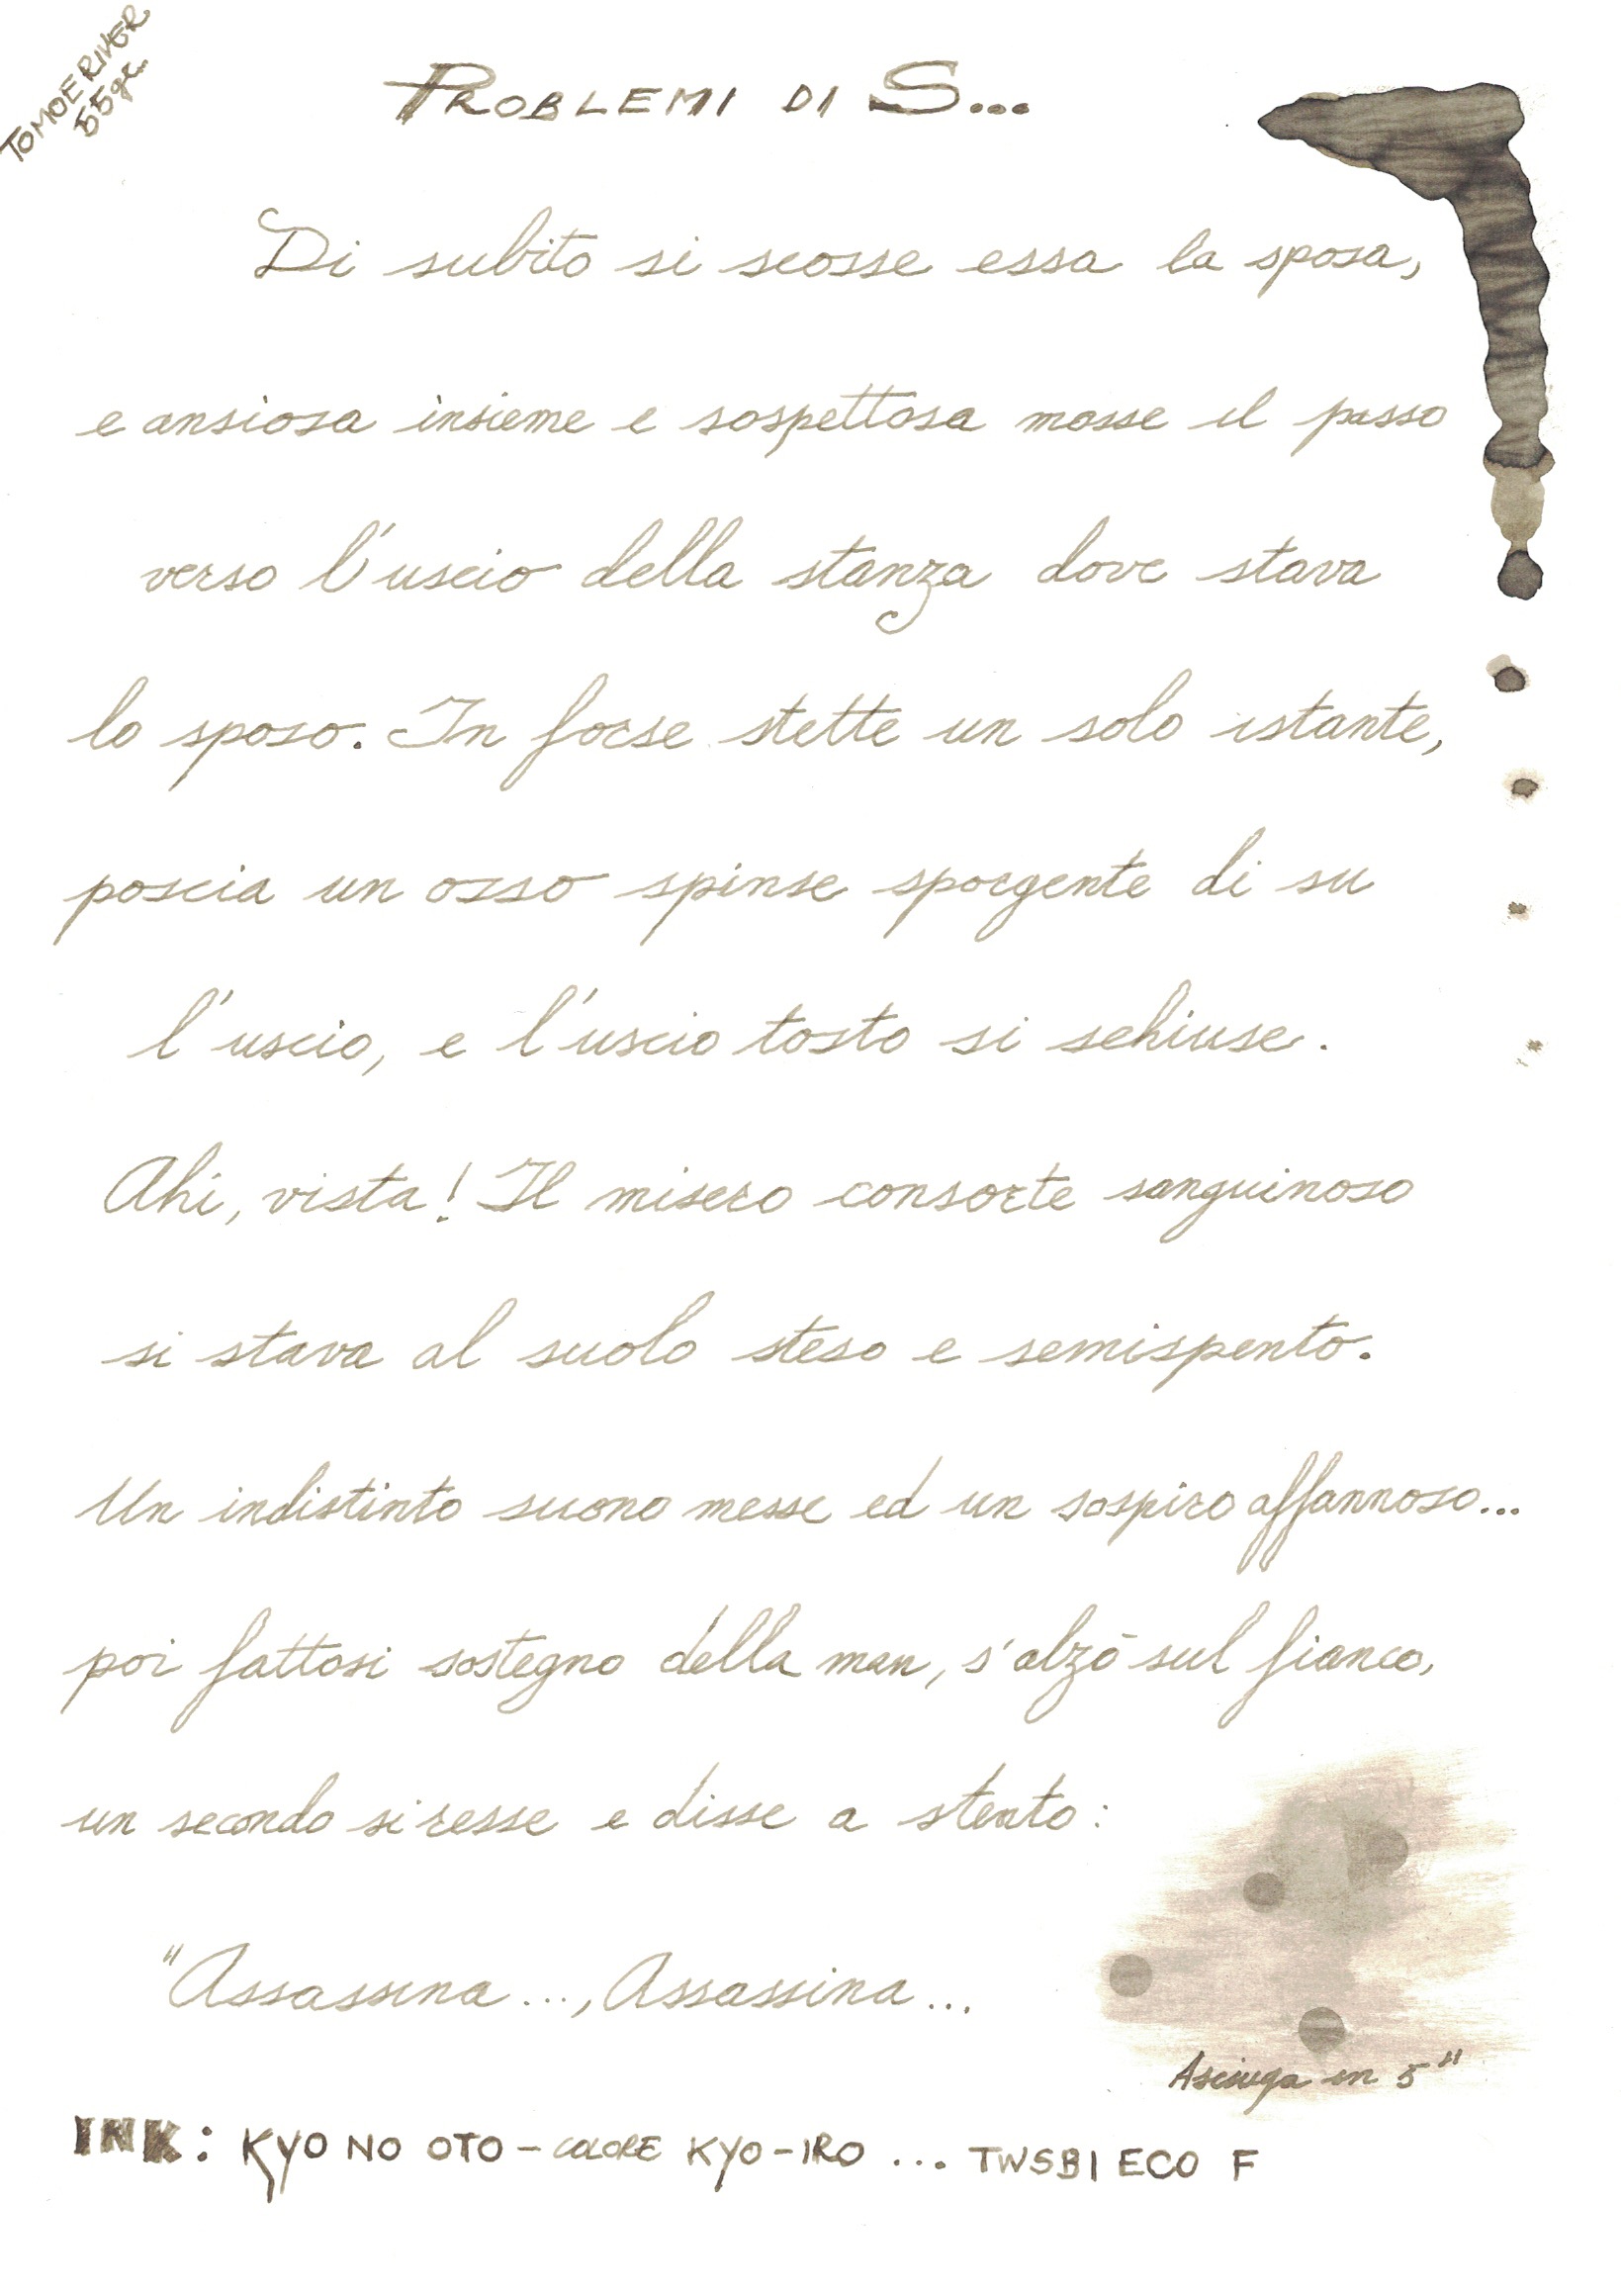 TOMOE RIVER
55gr.
PROBLEMI DI S...
Di subito si scosse essa la sposa,
e ansiosa insieme e sospettosa mosse il passo
verso l'uscio della stanza dove stava
lo sposo. In forse stette un solo istante,
poscia un osso spinse sporgente di su
l'uscio, e l'uscio tosto si schiuse.
Ahi, vista! Il misero consorte sanguinoso
si stava al suolo steso e semispento.
Un indistinto suono messe ed un sospiro affannoso...
poi fattosi sostegno della man, s'alzò sul fianco,
un secondo si resse e disse a stento:
"Assassina..., Assassina...
Asciuga in 5"
INK: KYO NO OTO - COLORE KYO-IRO ... TWSBI ECO F